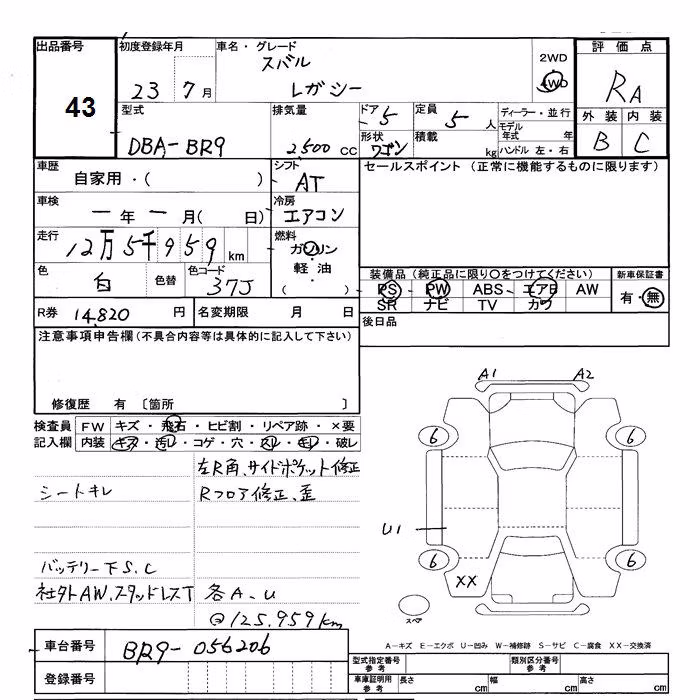 出品番号 43
初度登録年月 23 7月
車名・グレード スバル レガシー
2WD 4WD
評価点 RA
外装 内装
B C
型式 DBA-BR9
排気量 2500 cc
ドア 5
形状 ワゴン
定員 5 人
積載 kg
ディーラー・並行
モデル年式 年
ハンドル 左・右
車歴 自家用・( )
シフト AT
セールスポイント (正常に機能するものに限ります)
車検 ー年ー月( 日)
冷房 エアコン
走行 12万5千959 km
燃料 ガソリン
軽油
( )
色 白 色替
色コード 37J
装備品 (純正品に限り○をつけてください)
PS PW ABS エアB AW
SR ナビ TV カワ
新車保証書
有・無
R券 14,820 円
名変期限 月 日
後日品
注意事項申告欄 (不具合内容等は具体的に記入して下さい)
修復歴 有 〔箇所 〕
検査員記入欄
FW キズ・飛石・ヒビ割・リペア跡・×要
内装 キズ・汚レ・コゲ・穴・スレ・キレ・破レ
左R角、サイドポケット修正
シートキレ Rフロア修正、歪
バッテリー下S、C
社外AW、スタッドレスT 各A、U
@125,959km
A1 A2
6 6
U1
6 6
XX
スペア
A-キズ E-エクボ U-凹み W-補修跡 S-サビ C-腐食 XX-交換済
車台番号 BR9-056206
登録番号
型式指定番号 参考
類別区分番号 参考
車庫証明用 参考 長さ cm 幅 cm 高さ cm